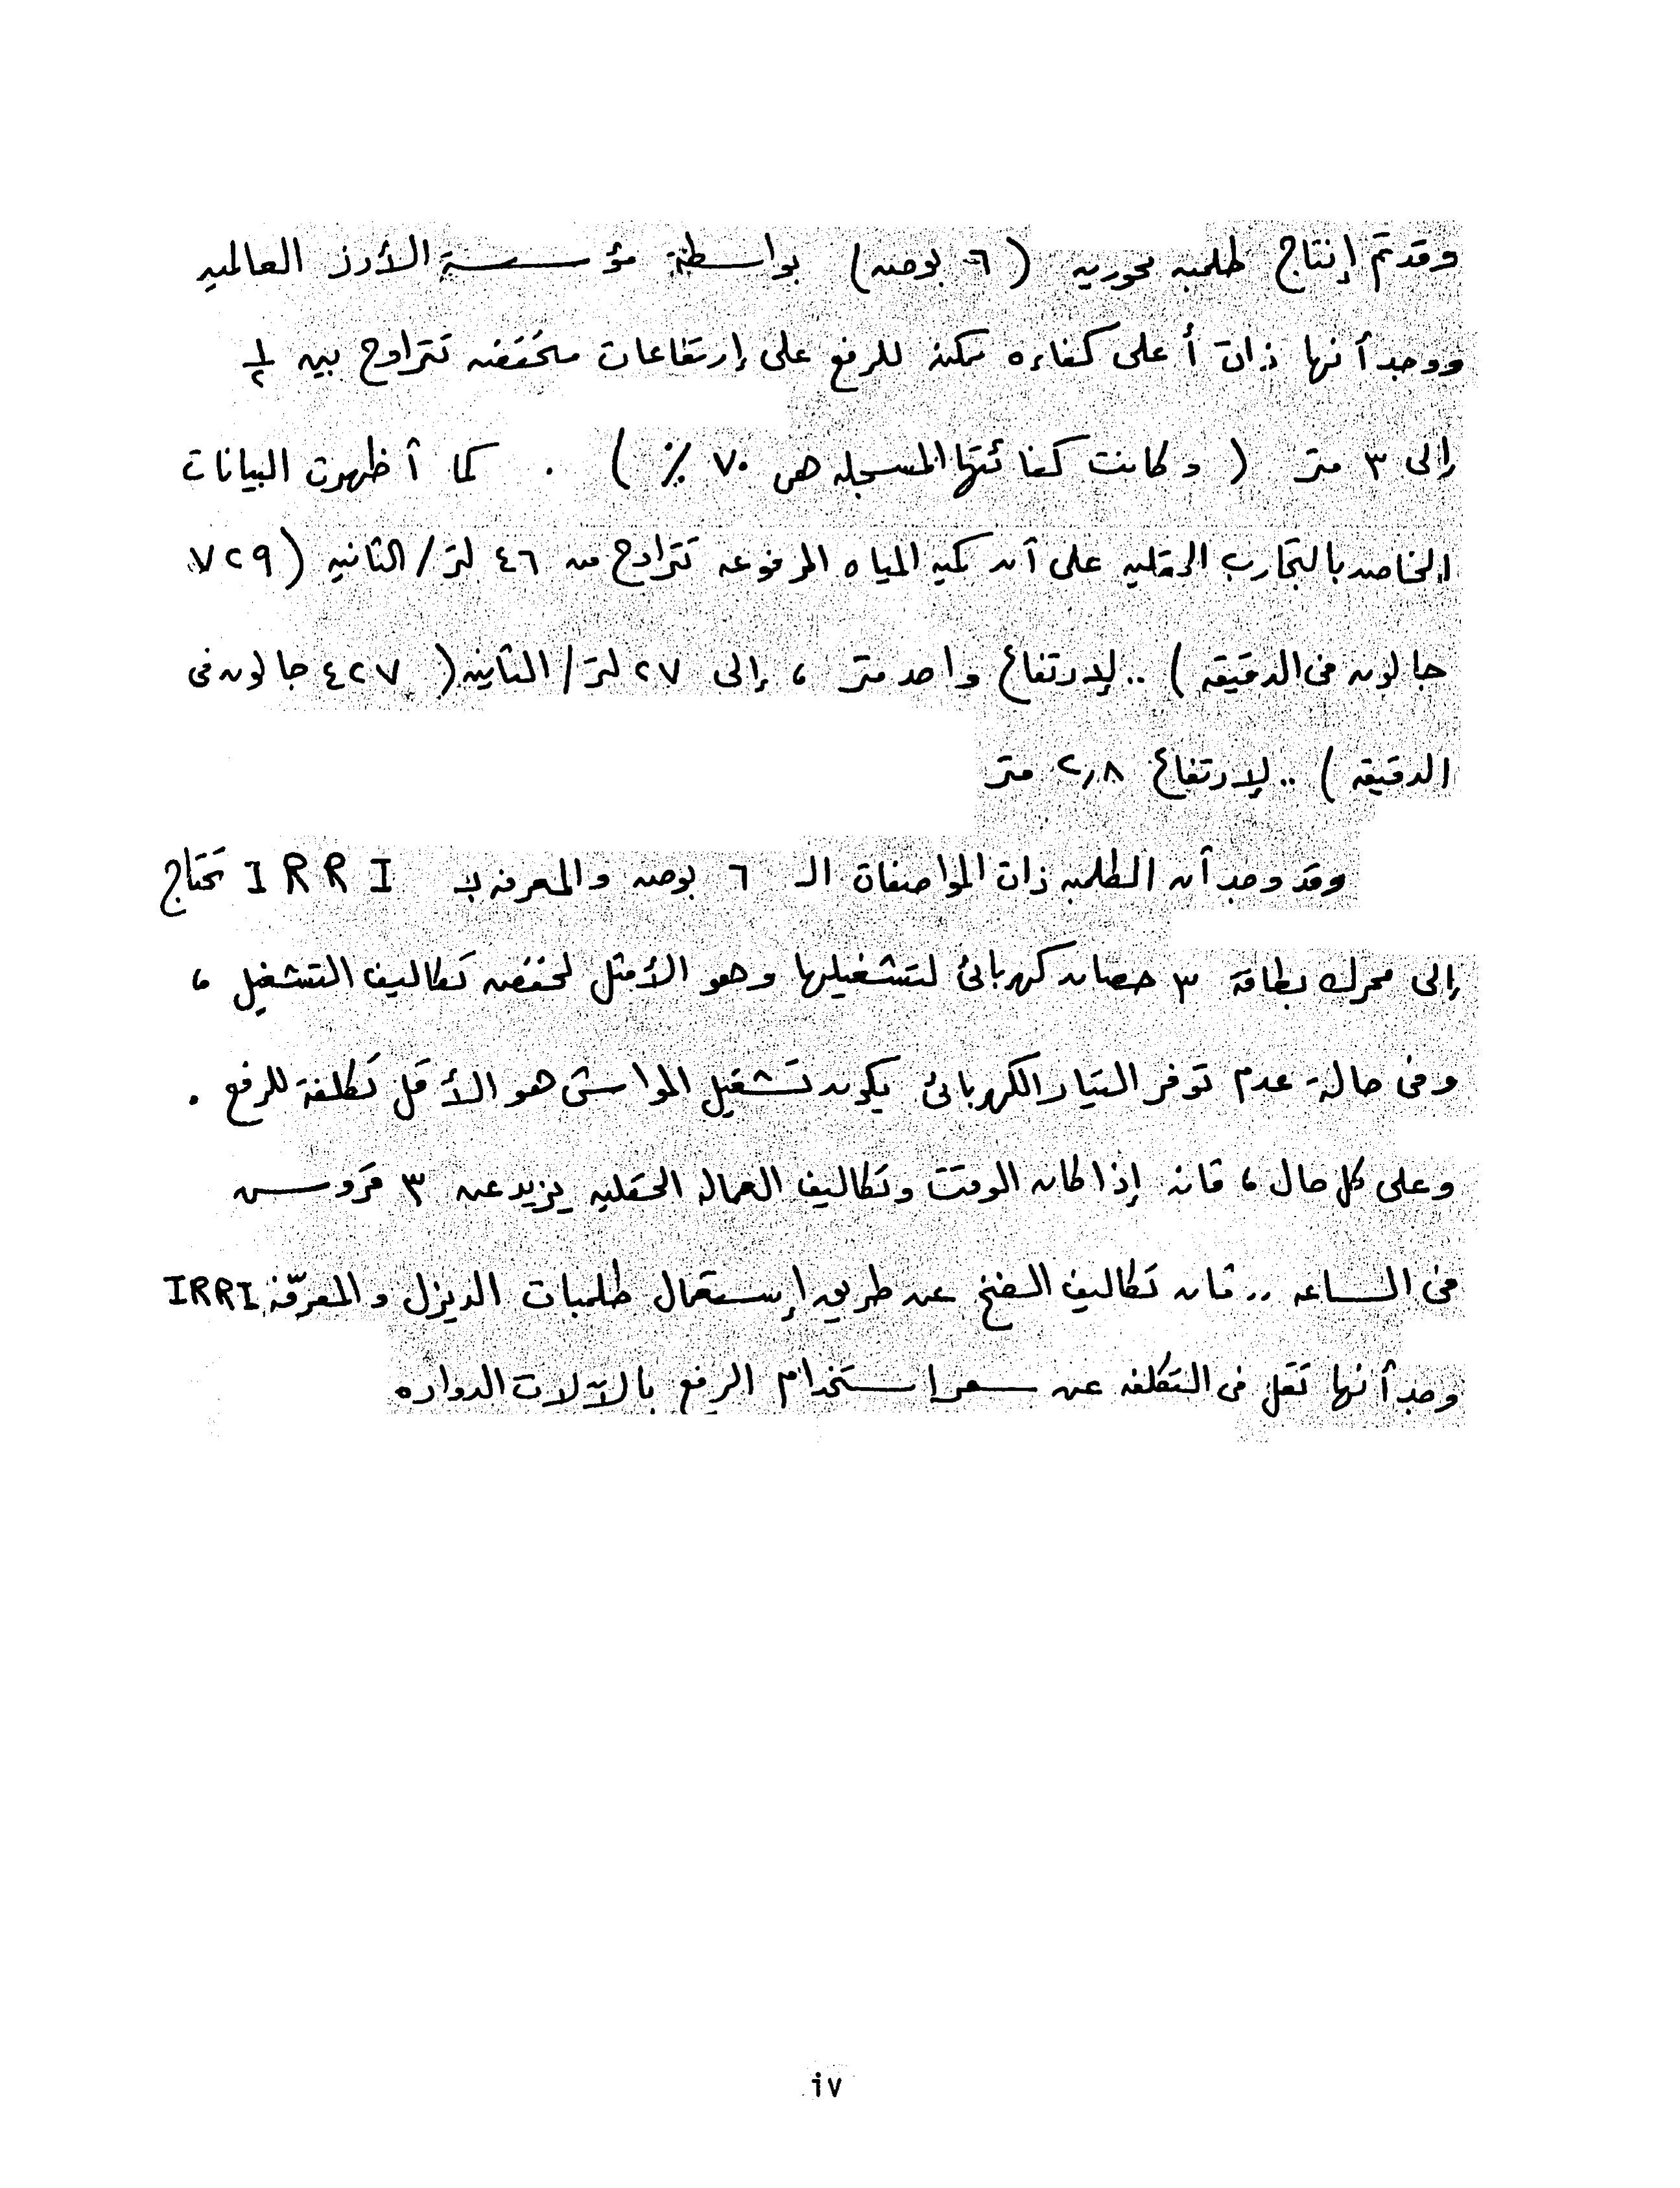 وقد تم إنتاج طلمبه محوريه ( ٦ بوصه ) بواسطة مؤسسة الأرز العالميه
ووجد أنها ذات أعلى كفاءه ممكنه للرفع على إرتفاعات منخفضه تتراوح بين ١/٢
إلى ٣ متر ( وكانت كفائتها المسجله هى ٧٠ ٪ ) . كما أظهرت البيانات
الخاصه بالتجارب الحقليه على أن كميه المياه المرفوعه تتراوح من ٤٦ لتر / الثانيه ( ٧٢٩
جالون فى الدقيقه ) .. لإرتفاع واحد متر ، إلى ٢٧ لتر / الثانيه ( ٤٢٧ جالون فى
الدقيقه ) .. لإرتفاع ٢,٨ متر
وقد وجد أن الطلمبه ذات المواصفات الـ ٦ بوصه والمعرفه بـ IRRI تحتاج
إلى محرك بطاقة ٣ حصان كهربائى لتشغيلها وهو الأمثل لخفض تكاليف التشغيل ،
وفى حالة عدم توفر التيار الكهربائى يكون تشغيل المواشى هو الأقل تكلفة للرفع .
وعلى كل حال ، فانه إذا كان الوقت وتكاليف العماله الحقليه يزيد عن ٣ قروش
فى الساعه .. فان تكاليف الضخ عن طريق إستعمال طلمبات الديزل والمعرّفه IRRI
وجد أنها تقل فى التكلفه عن سعر إستخدام الرفع بالآلات الدواره
iv